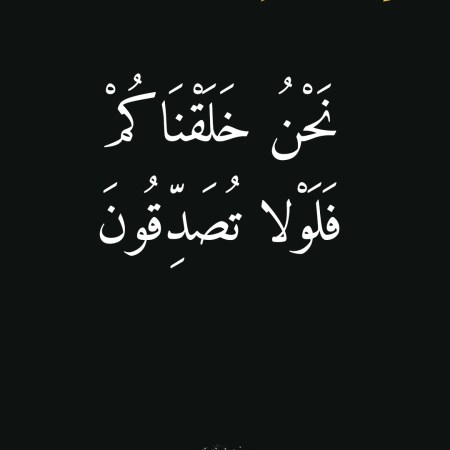 نَحْنُ خَلَقْنَاكُمْ
فَلَوْلَا تُصَدِّقُونَ